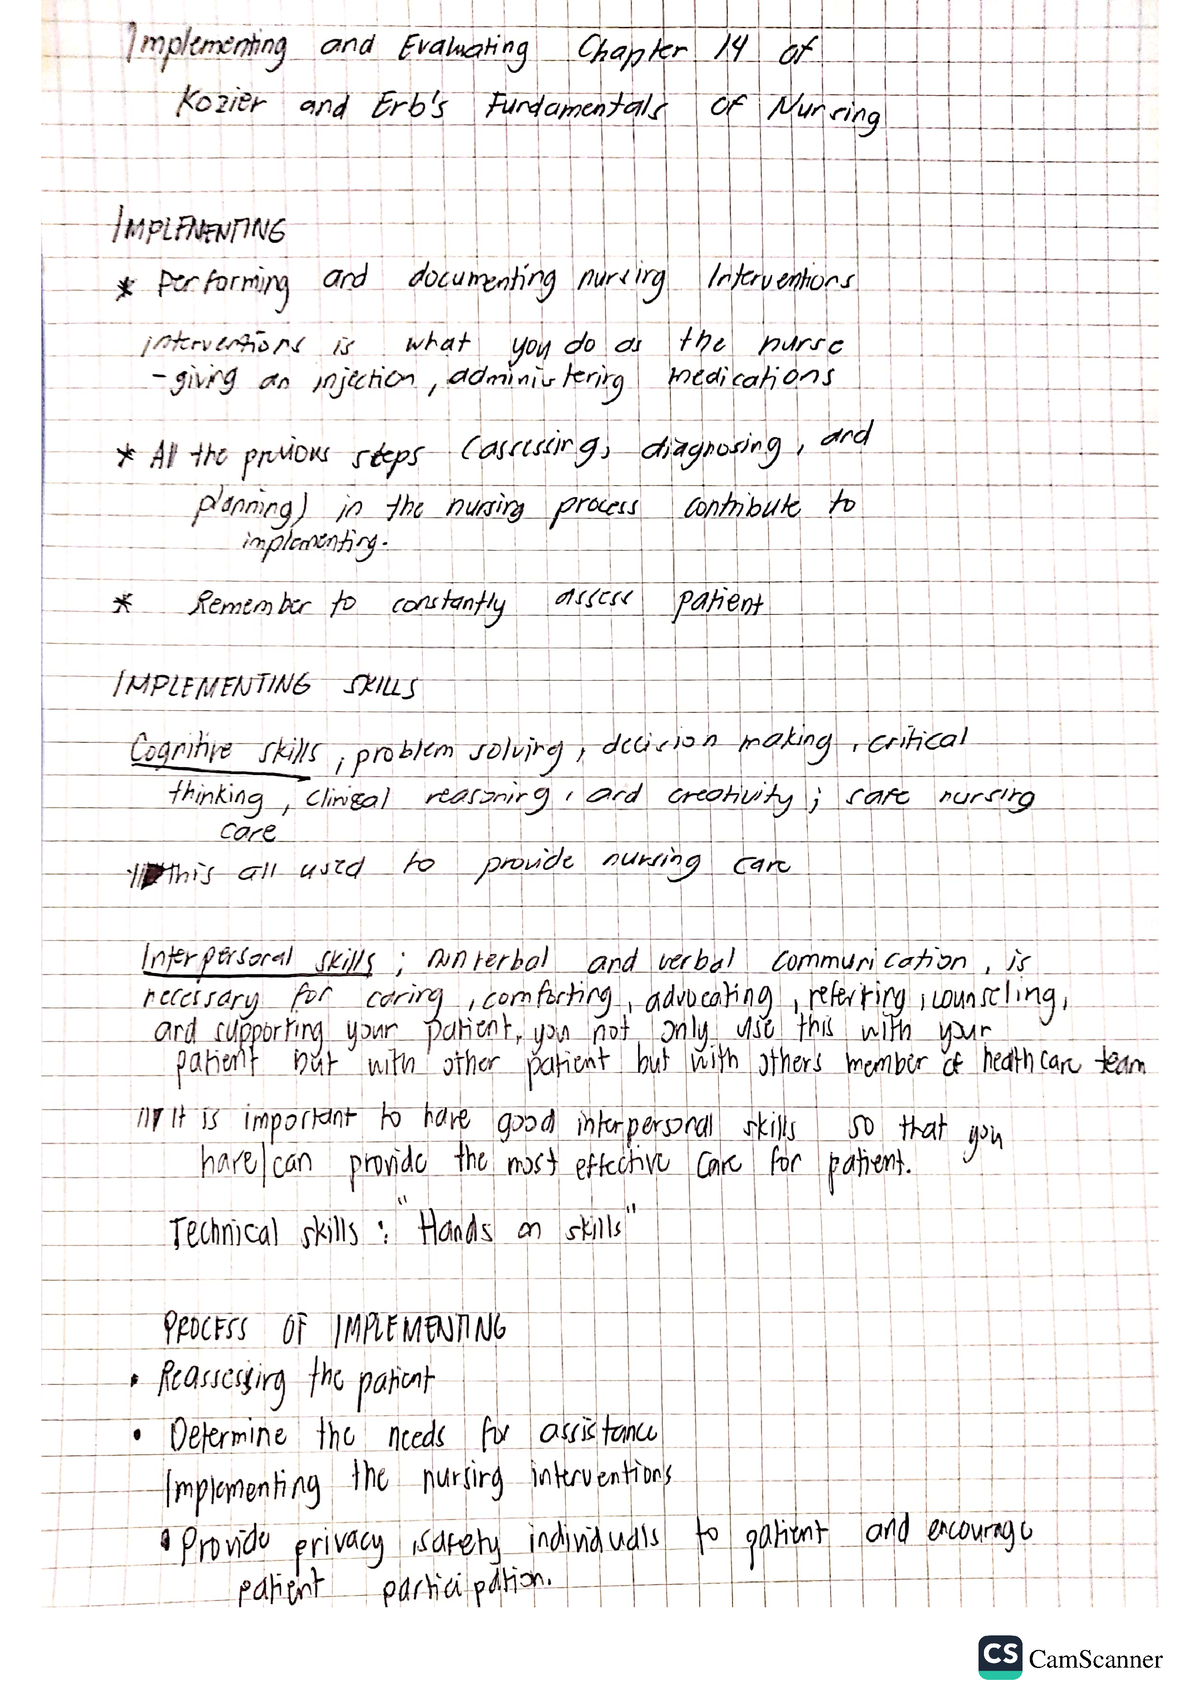 Implementing and Evaluating Chapter 14 of
Kozier and Erb's Fundamentals of Nursing
IMPLEMENTING
* Performing and documenting nursing Interventions
interventions is what you do as the nurse
- giving an injection, administering medications
* All the previous steps (assessing, diagnosing, and
planning) in the nursing process contribute to
implementing.
* Remember to constantly assess patient
IMPLEMENTING SKILLS
Cognitive skills, problem solving, decision making, critical
thinking, clinical reasoning, and creativity; safe nursing
care
this all used to provide nursing care
Interpersonal skills; nonverbal and verbal communication, is
necessary for caring, comforting, advocating, referring, counseling,
and supporting your patient, you not only use this with your
patient but with other patient but with others member of healthcare team
It is important to have good interpersonal skills so that you
have/can provide the most effective care for patient.
Technical skills : "Hands on skills"
PROCESS OF IMPLEMENTING
• Reassessing the patient
• Determine the needs for assistance
Implementing the nursing interventions
• Provide privacy, safety individuals to patient and encourage
patient participation.
CS CamScanner